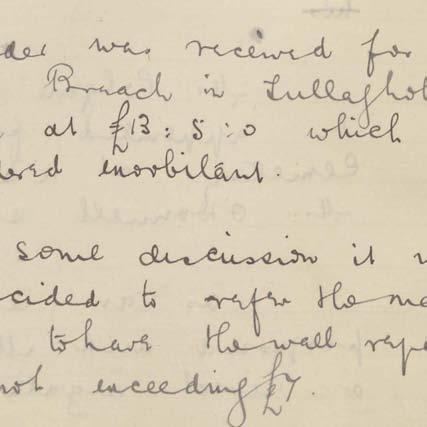 der was received for
Breach in Tullagho
at £13:5:0 which
dered enorbilant.
some discussion it
cided to refer the me
to have the wall repa
not exceeding £7.